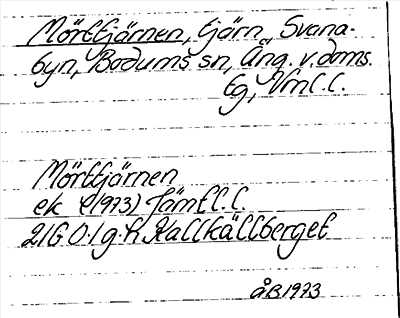 Mörttjärnen, tjärn, Svana-
byn, Bodums sn, Ång. v. doms.
tg, Vnl. l.
Mörttjärnen
ek (1973) Jämtl. l.
21G 0-1 g-h Kallkällberget
ÅB 1973